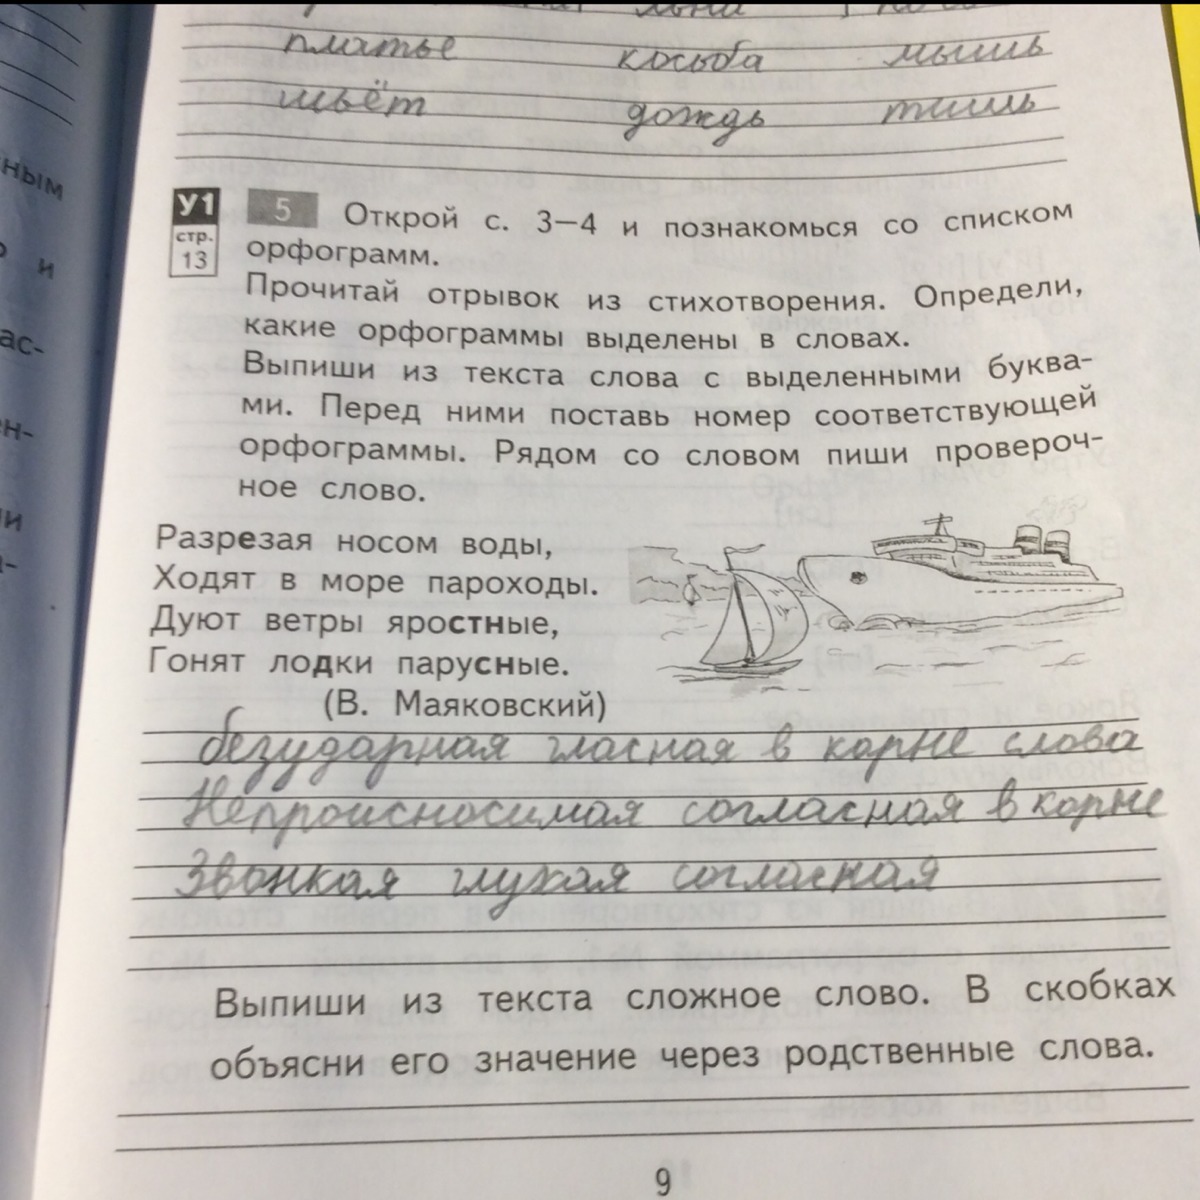 платье косьба мышь
шьёт дождь тишь
У1 5 Открой с. 3—4 и познакомься со списком
стр. 13 орфограмм.
Прочитай отрывок из стихотворения. Определи,
какие орфограммы выделены в словах.
Выпиши из текста слова с выделенными буква-
ми. Перед ними поставь номер соответствующей
орфограммы. Рядом со словом пиши провероч-
ное слово.
Разрезая носом воды,
Ходят в море пароходы.
Дуют ветры яростные,
Гонят лодки парусные.
(В. Маяковский)
безударная гласная в корне слова
Непроисносимая согласная в корне
Звонкая глухая согласная
Выпиши из текста сложное слово. В скобках
объясни его значение через родственные слова.
9